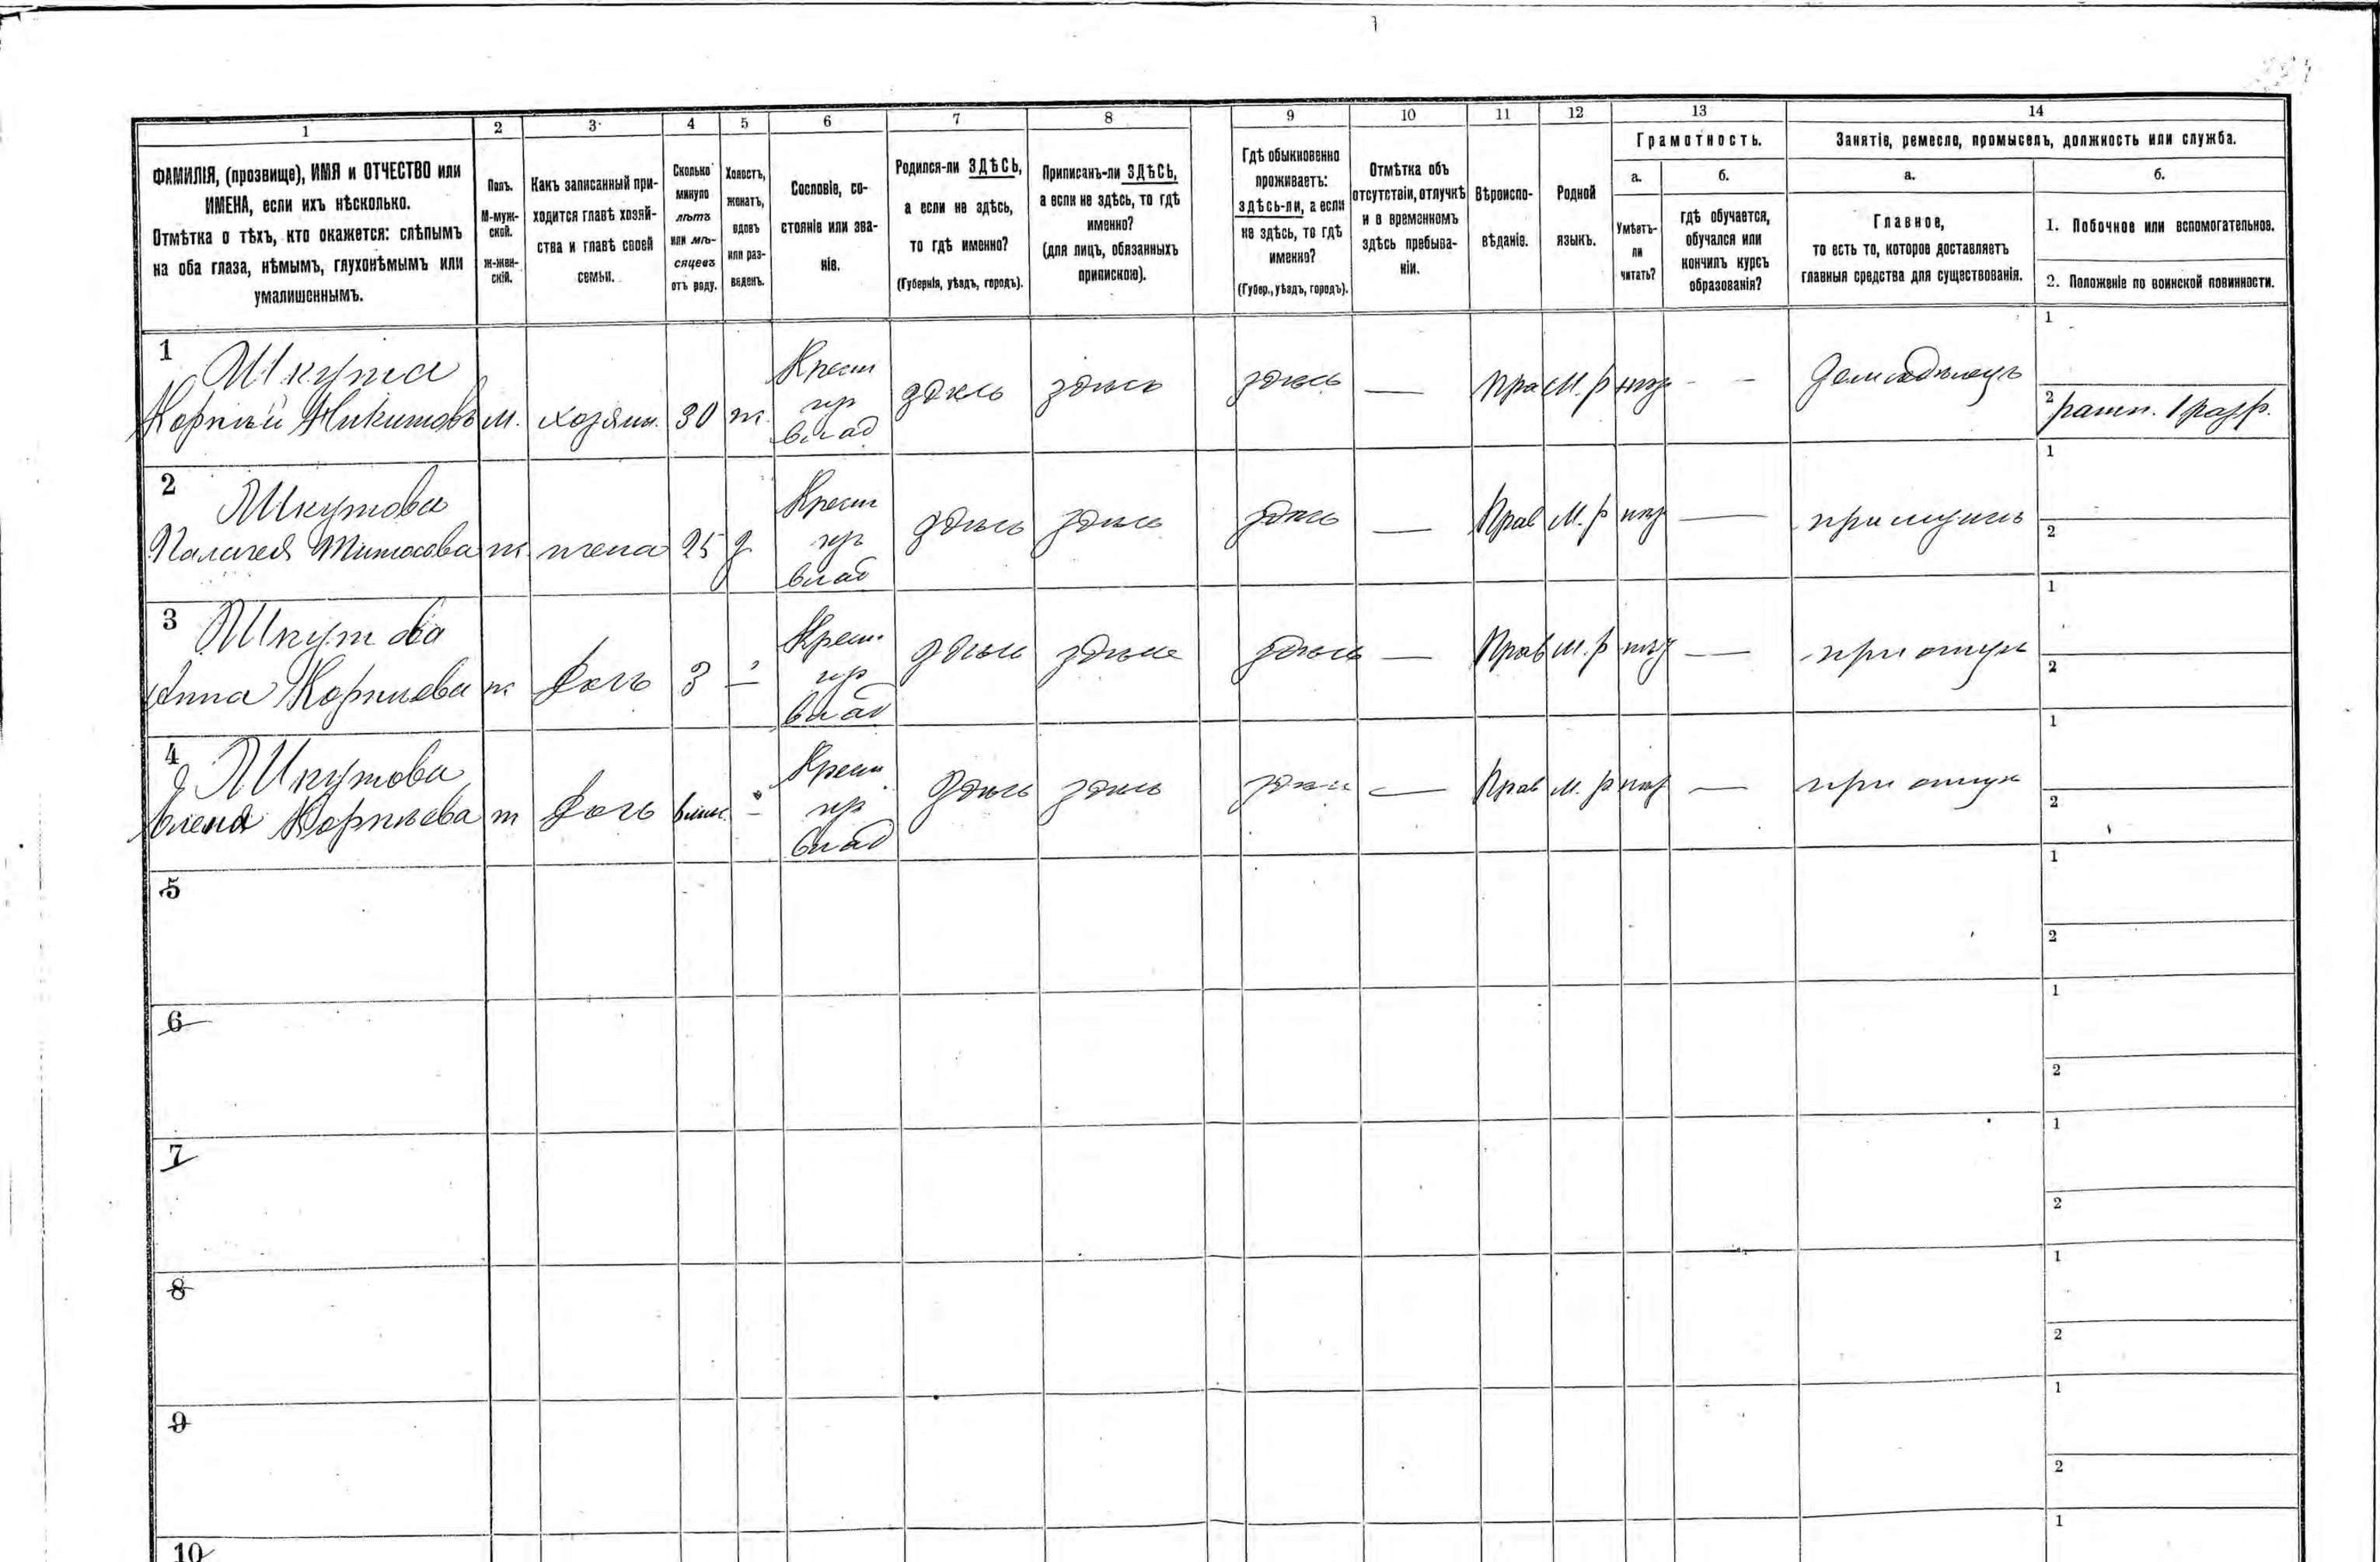 1 2 3 4 5 6 7 8 9 10 11 12 13 14
ФАМИЛІЯ, (прозвище), ИМЯ и ОТЧЕСТВО или
ИМЕНА, если ихъ нѣсколько.
Отмѣтка о тѣхъ, кто окажется: слѣпымъ
на оба глаза, нѣмымъ, глухонѣмымъ или
умалишеннымъ.
Полъ.
М-муж-
ской.
ж-жен-
скій.
Какъ записанный при-
ходится главѣ хозяй-
ства и главѣ своей
семьи.
Сколько
минуло
лѣтъ
или мѣ-
сяцевъ
отъ роду.
Холостъ,
женатъ,
вдовъ
или раз-
веденъ.
Сословіе, со-
стояніе или зва-
ніе.
Родился-ли ЗДѢСЬ,
а если не здѣсь,
то гдѣ именно?
(Губернія, уѣздъ, городъ).
Приписанъ-ли ЗДѢСЬ,
а если не здѣсь, то гдѣ
именно?
(для лицъ, обязанныхъ
припискою).
Гдѣ обыкновенно
проживаетъ:
здѣсь-ли, а если
не здѣсь, то гдѣ
именно?
(Губер., уѣздъ, городъ).
Отмѣтка объ
отсутствіи, отлучкѣ
и о временномъ
здѣсь пребыва-
ніи.
Вѣроиспо-
вѣданіе.
Родной
языкъ.
Грамотность.
а.
Умѣетъ-
ли
читать?
б.
гдѣ обучается,
обучался или
кончилъ курсъ
образованія?
Занятіе, ремесло, промыселъ, должность или служба.
а.
Главное,
то есть то, которое доставляетъ
главныя средства для существованія.
б.
1. Побочное или вспомогательное.
2. Положеніе по воинской повинности.
1 Шкута
Корній Никитовъ м. хозяин. 30 ж. Крест пр влад здѣсь здѣсь здѣсь — Пра М. р нѣт - - Земледѣлецъ
1
2 ратн. 1 разр.
2 Шкутова
Палагея Титосова ж жена 25 з Крест пр влад здѣсь здѣсь здѣсь — Прав М. р нѣт — при мужѣ
1
2
3 Шкутова
Анна Корніева ж дочь 3 — Крест. пр влад здѣсь здѣсь здѣсь — Прав М. р нѣт — при отцѣ
1
2
4 Шкутова
Елена Корніева ж дочь — Крест. пр влад здѣсь здѣсь здѣсь — Прав М. р нѣт — при отцѣ
1
2
5
1
2
6
1
2
7
1
2
8
1
2
9
1
2
10
1